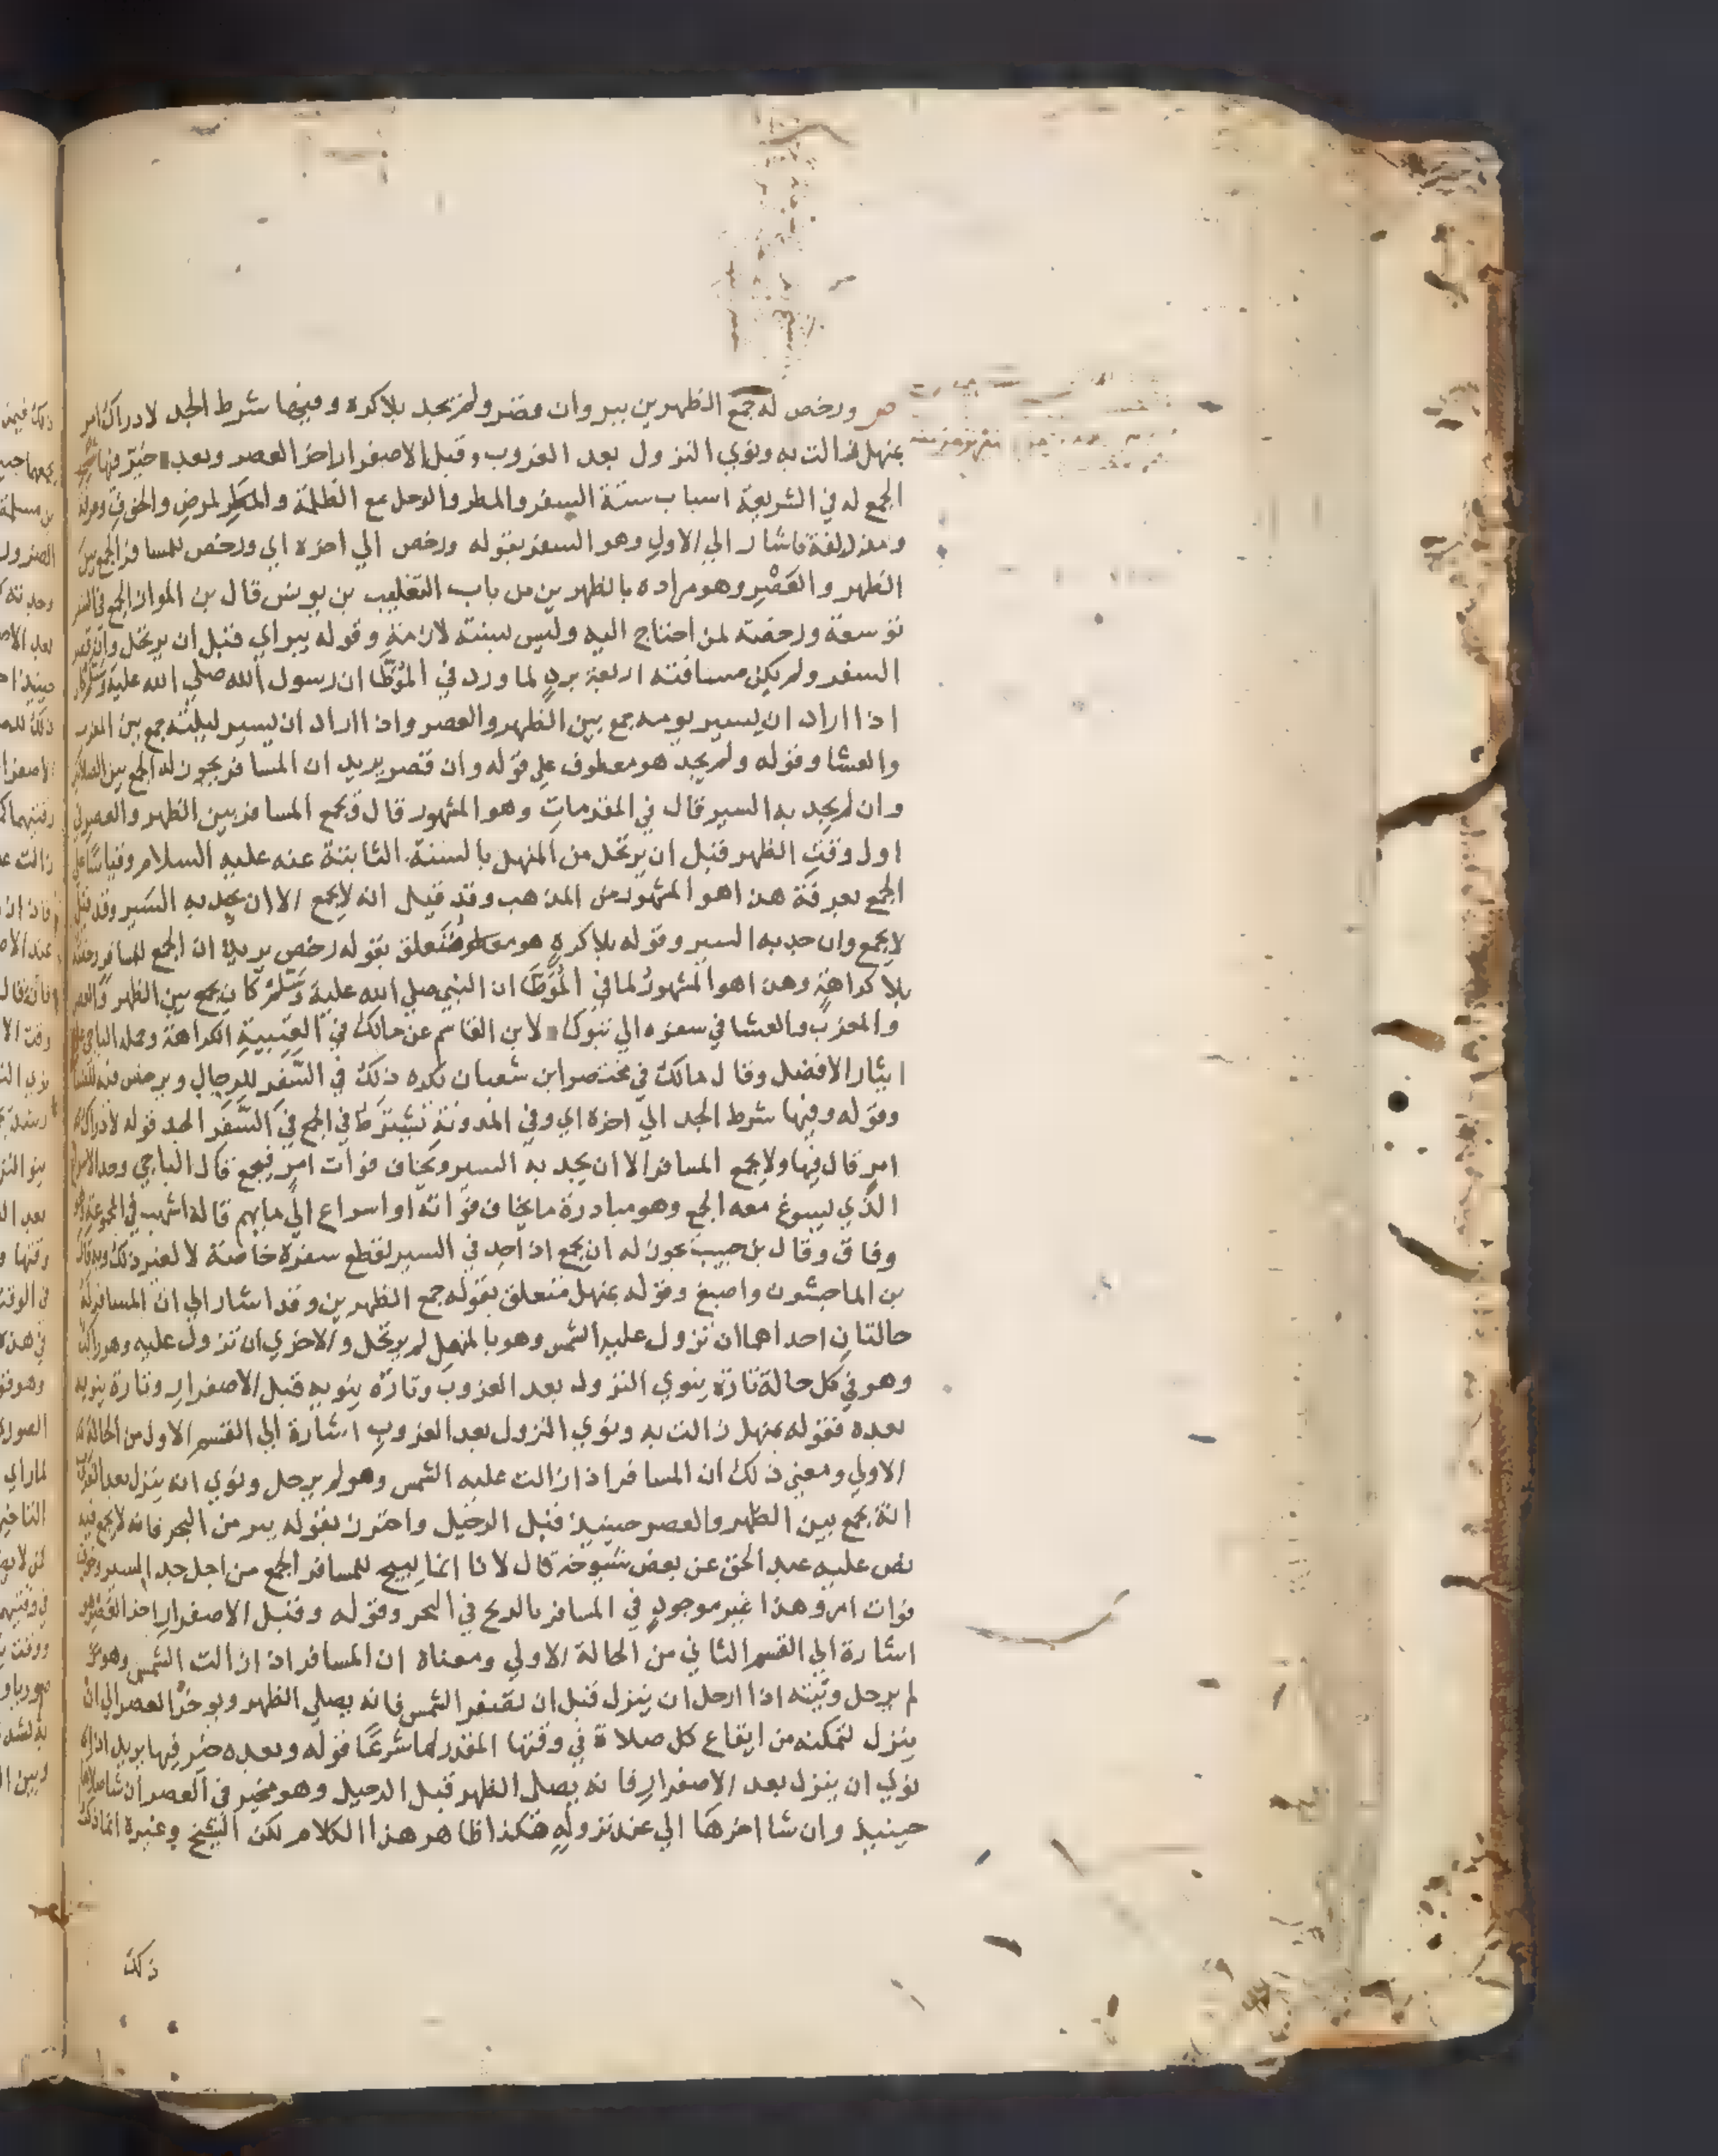 ص ورخص له جمع الظهرين ببر وان قصر ولم يجد بلا كره وفيها شرط الجد لادراك امر
بمنهل زالت به ونوي النزول بعد الغروب وقبل الاصفرار اخر العصر وبعده خير فيها ش
الجمع له في الشريعة اسباب ستة السفر والمطر والوحل مع الظلمة والمرض والخوف وعرفة
ومزدلفة فاشار الي الاول وهو السفر بقوله ورخص الي اخره اي ورخص للمسافر الجمع بين
الظهر والعصر وهو مراده بالظهرين من باب التغليب بن يونس قال بن المواز الجمع في السفر
توسعة ورخصة لمن احتاج اليه وليس بسنة لازمة وقوله ببر اي قبل ان يرتحل وان قصر
السفر ولم يكن مسافته اربعة برد لما ورد في الموطا ان رسول الله صلي الله عليه وسلم كان
اذا اراد ان يسير يومه جمع بين الظهر والعصر واذا اراد ان يسير ليلته جمع بين المغرب
والعشا وقوله ولم يجد هو معطوف علي قوله وان قصر يريد ان المسافر يجوز له الجمع بين الصلاتين
وان لم يجد به السير قال في المقدمات وهو المشهور قال ويجمع المسافر بين الظهر والعصر في
اول وقت الظهر قبل ان يرتحل من المنهل بالسنة الثابتة عنه عليه السلام وقياسا علي
الجمع بعرفة هذا هو المشهور من المذهب وقد قيل انه لا يجمع الا ان يجد به السير وقد قيل
لا يجمع وان جد به السير وقوله بلا كره هو متعلق بقوله رخص يريد ان الجمع للمسافر رخصة
بلا كراهة وهذا هو المشهور لما في الموطا ان النبي صلي الله عليه وسلم كان يجمع بين الظهر والعصر
والمغرب والعشا في سفره الي تبوك لابن القاسم عن مالك في العتبية الكراهة وحمله الباجي علي
ايثار الافضل وقال مالك في مختصر ابن شعبان نكره ذلك في السفر للرجال ويرخص فيه للنسا
وقوله وفيها شرط الجد الي اخره اي وفي المدونة تشترط في الجمع في السفر الجد قوله لادراك
امر قال فيها ولا يجمع المسافر الا ان يجد به السير ويخاف فوات امر فيجمع قال الباجي وحد الاسراع
الذي يسوغ معه الجمع وهو مبادرة ما يخاف فواته او اسراع الي ما يهم قاله اشهب في المجموعة
وفاق وقال بن حبيب يجوز له ان يجمع اذا جد في السير لقطع سفره خاصة لا لغير ذلك وبه قال
بن الماجشون واصبغ وقوله بمنهل متعلق بقوله جمع الظهرين وقد اشار الي ان المسافر له
حالتان احداهما ان تزول عليه الشمس وهو بالمنهل لم يرتحل والاخري ان تزول عليه وهو راكب
وهو في كل حالة تارة ينوي النزول بعد الغروب وتارة ينويه قبل الاصفرار وتارة ينويه
بعده فقوله بمنهل زالت به ونوي النزول بعد الغروب اشارة الي القسم الاول من الحالة
الاولي ومعني ذلك ان المسافر اذا زالت عليه الشمس وهو لم يرحل ونوي انه ينزل بعد الغروب
انه يجمع بين الظهر والعصر حينيذ قبل الرحيل واحترز بقوله ببر من البحر فانه لا يجمع فيه
نص عليه عبد الحق عن بعض شيوخه قال لانا انما نبيح للمسافر الجمع من اجل جد السير وخوف
فوات امر وهذا غير موجود في المسافر بالريح في البحر وقوله وقبل الاصفرار اخر العصر هو
اشارة الي القسم الثاني من الحالة الاولي ومعناه ان المسافر اذا زالت الشمس وهو
لم يرحل ونيته اذا ارحل ان ينزل قبل ان تصفر الشمس فانه يصلي الظهر ويوخر العصر الي ان
ينزل لتمكنه من ايقاع كل صلاة في وقتها المقدر لها شرعا قوله وبعده خير فيها يريد اذا
نوي ان ينزل بعد الاصفرار فانه يصلي الظهر قبل الرحيل وهو مخير في العصر ان شا صلاها
حينيذ وان شا اخرها الي عند نزوله هكذا ظاهر هذا الكلام لكن الشيخ وغيره انما ذكر
ذلك